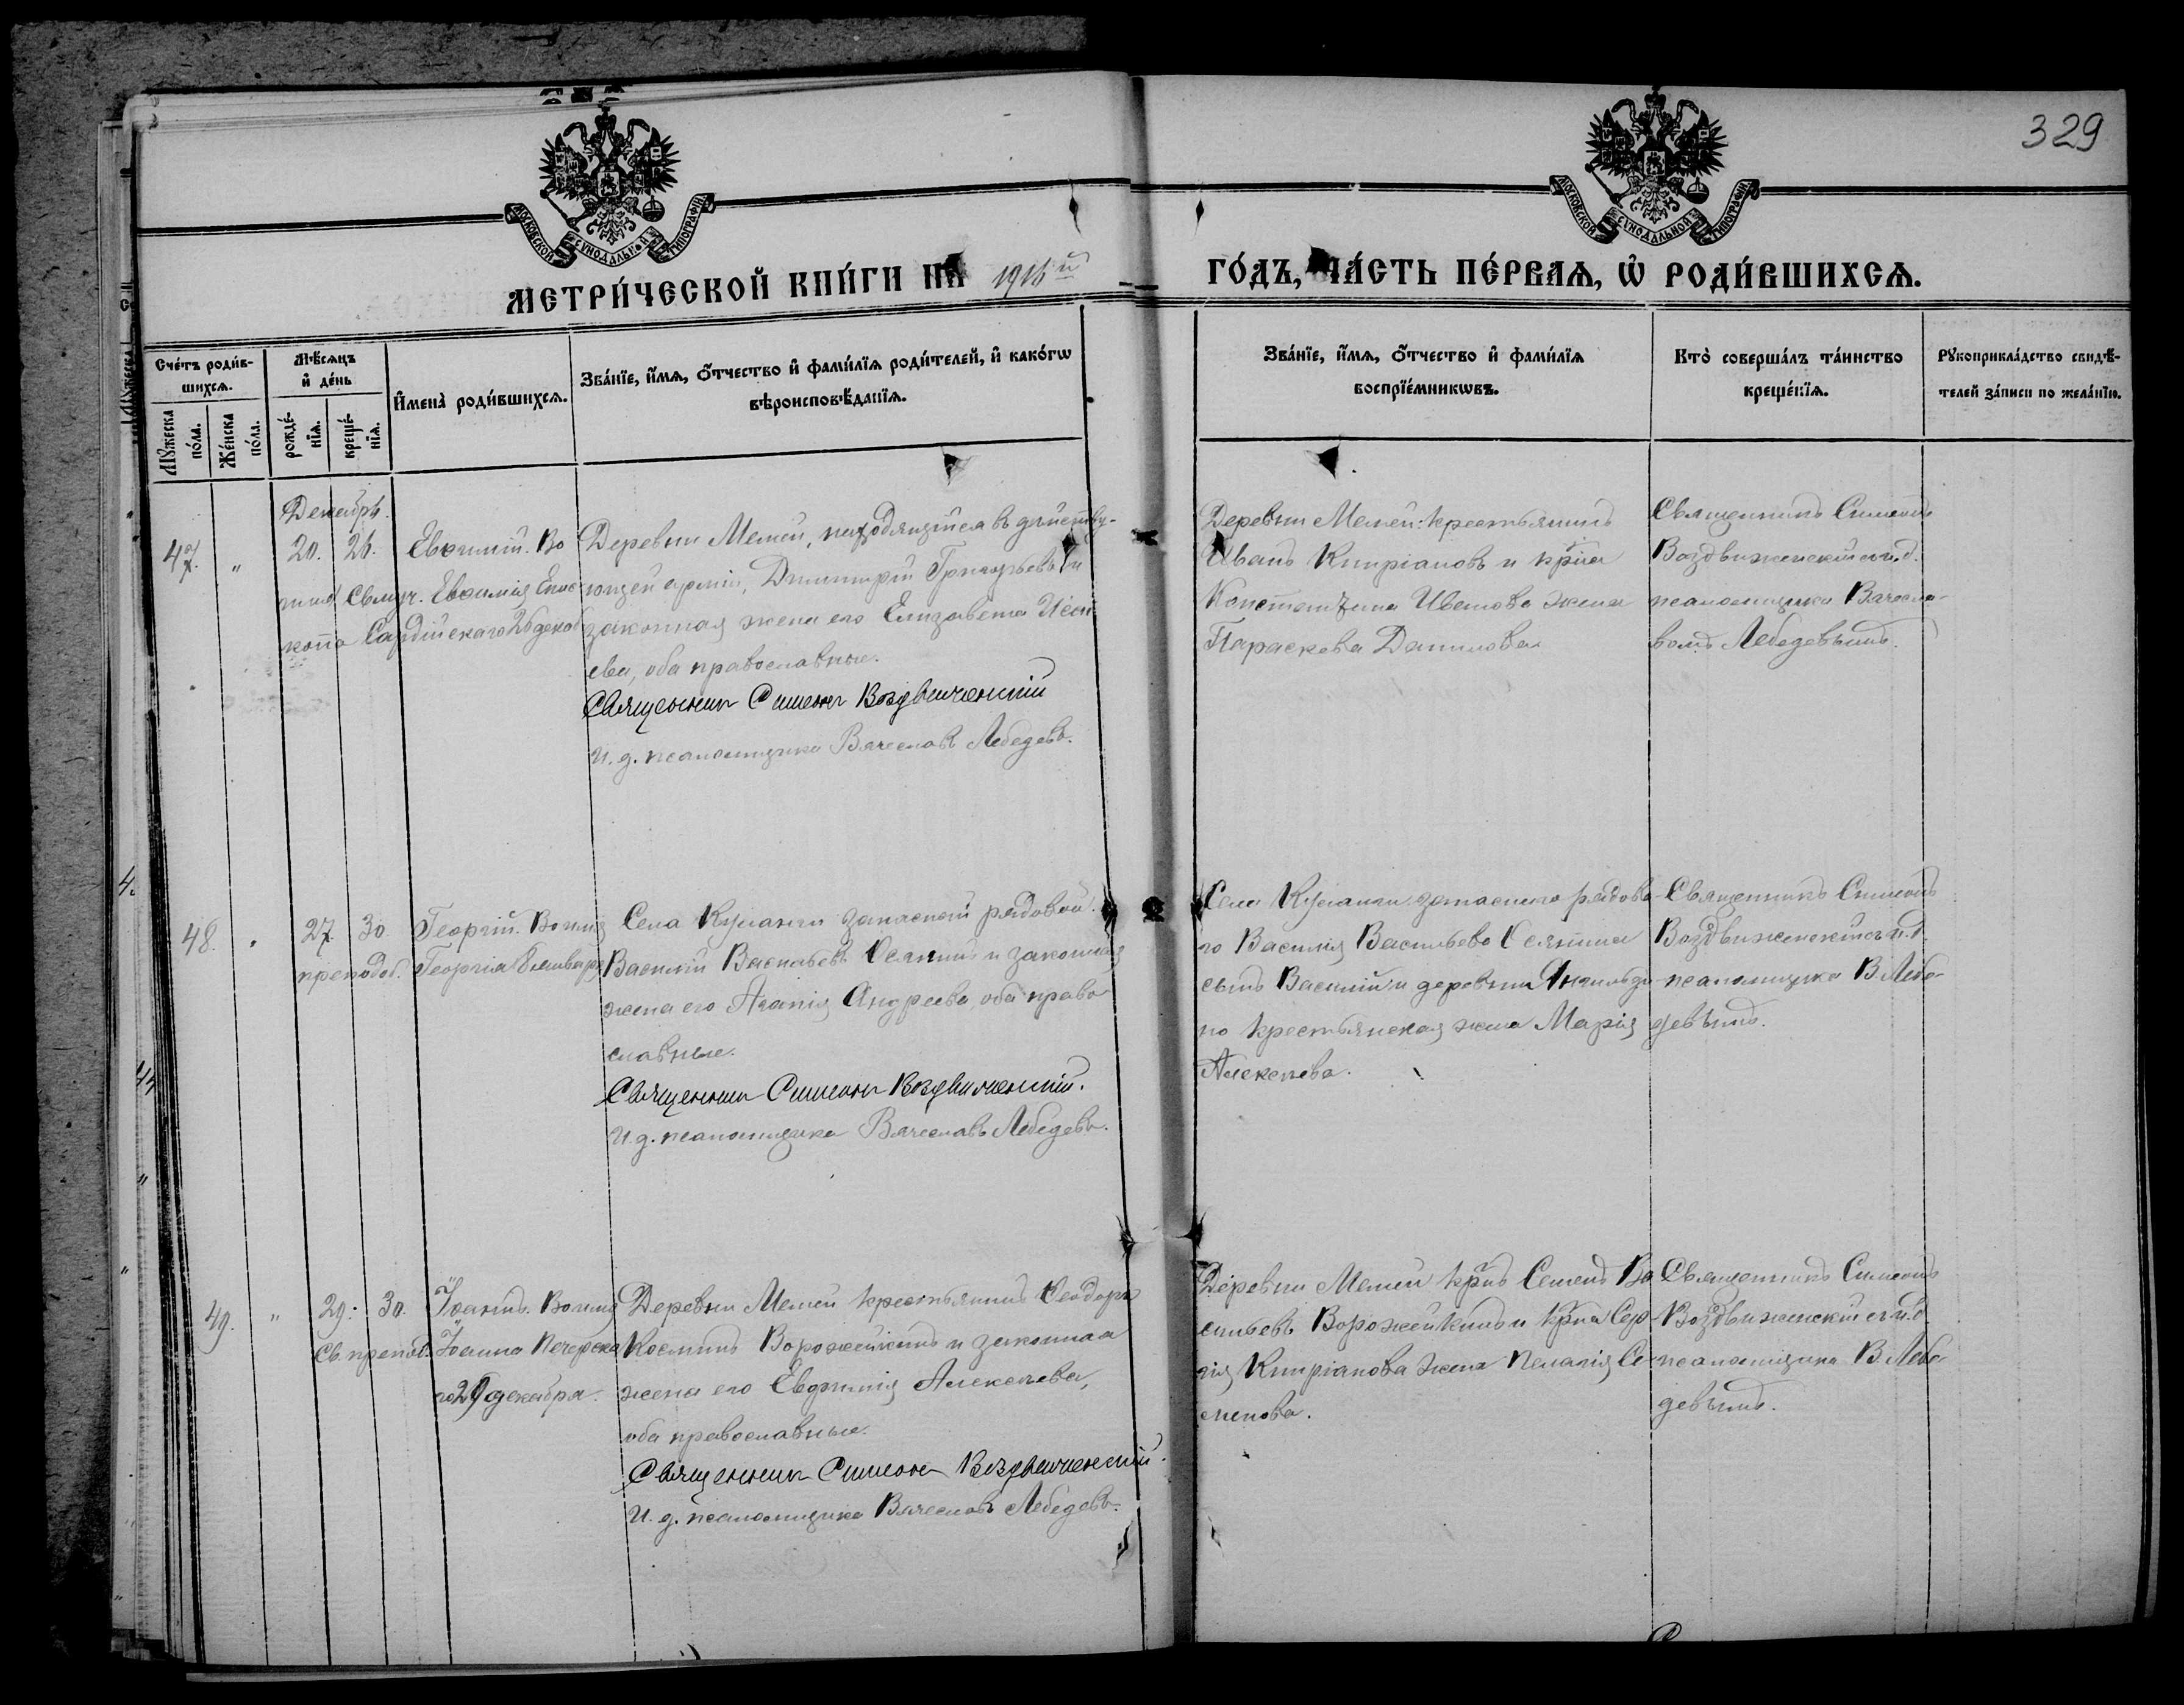 329
МОСКОВСКОЙ СУНОДАЛЬНОЙ ТИПОГРАФІИ
МОСКОВСКОЙ СУНОДАЛЬНОЙ ТИПОГРАФІИ
МЕТРИ́ЧЕСКОЙ КНИ́ГИ НА 191 й ГО́ДЪ, ЧА́СТЬ ПЕ́РВАѦ, Ѡ РОДИ́ВШИХСѦ.
Сче́тъ роди́в-
шихсѧ.
Мꙋжеска по́ла.
Же́нска по́ла.
Мѣ́сѧцъ
и҆ де́нь
рожде́-
нїѧ.
креще́-
нїѧ.
И҆мена̀ роди́вшихсѧ.
Зва́нїе, и҆́мѧ, ѻ҆́тчество и҆ фами́лїѧ роди́телей, и҆ како́гѡ
вѣроисповѣ́данїѧ.
Зва́нїе, и҆́мѧ, ѻ҆́тчество и҆ фами́лїѧ
воспрїе́мникѡвъ.
Кто̀ соверша́лъ та́инство
креще́нїѧ.
Рꙋкоприкла́дство свидѣ́-
телей за́писи по жела́нїю.
Декабрь.
47. " 20. 26. Евѳимій. Во
имя Свмуч. Евѳимія Епис
копа Сардійскаго 26 декаб
Деревни Мемей, находящійся въ действу-
ющей арміи, Димитрій Григорьевъ и
законная жена его Елизавета
ева, оба православные.
Священник Симеон Воздвиженский
И. д. псаломщика Вячеслав Лебедевъ.
Деревни Мемей: крестьянинъ
Иванъ Кипріановъ и кр̃на
Константина Иванова жена
Параскева Данилова
Священникъ Симеонъ
Воздвиженскій съ и.д.
псаломщика Вячесла-
вомъ Лебедевымъ.
48. " 27. 30. Георгій. Во имя
преподоб. Георгія 8 января
Села Куланги запасной рядовой
Василій Васильевъ и законная
жена его Агапія Андреева, оба право
славные.
Священник Симеон Воздвиженский.
И. д. псаломщика Вячеславъ Лебедевъ.
Села Куланги запаснаго рядово-
го Василія Васильева
сынъ Василій и деревни
но крестьянская жена Марія
Алексеева.
Священникъ Симеонъ
Воздвиженскій съ и.д.
псаломщика В. Лебе-
девымъ.
49. " 29. 30. Іоаннъ. Во имя
Св. препод. Іоанна Печерска
го 29 декабря.
Деревни Мемей крестьянинъ Ѳеодоръ
Косминъ Ворожейкинъ и законная
жена его Евдокія Алексеева,
оба православные.
Священник Симеон Воздвиженский.
И. д. псаломщика Вячеслав Лебедевъ.
Деревни Мемей кр̃нъ Семенъ Ва
сильевъ Ворожейкинъ и кр̃на Сер
гія Кипріанова жена Пелагія Се-
менова.
Священникъ Симеонъ
Воздвиженскій съ и.д.
псаломщика В. Лебе-
девымъ.